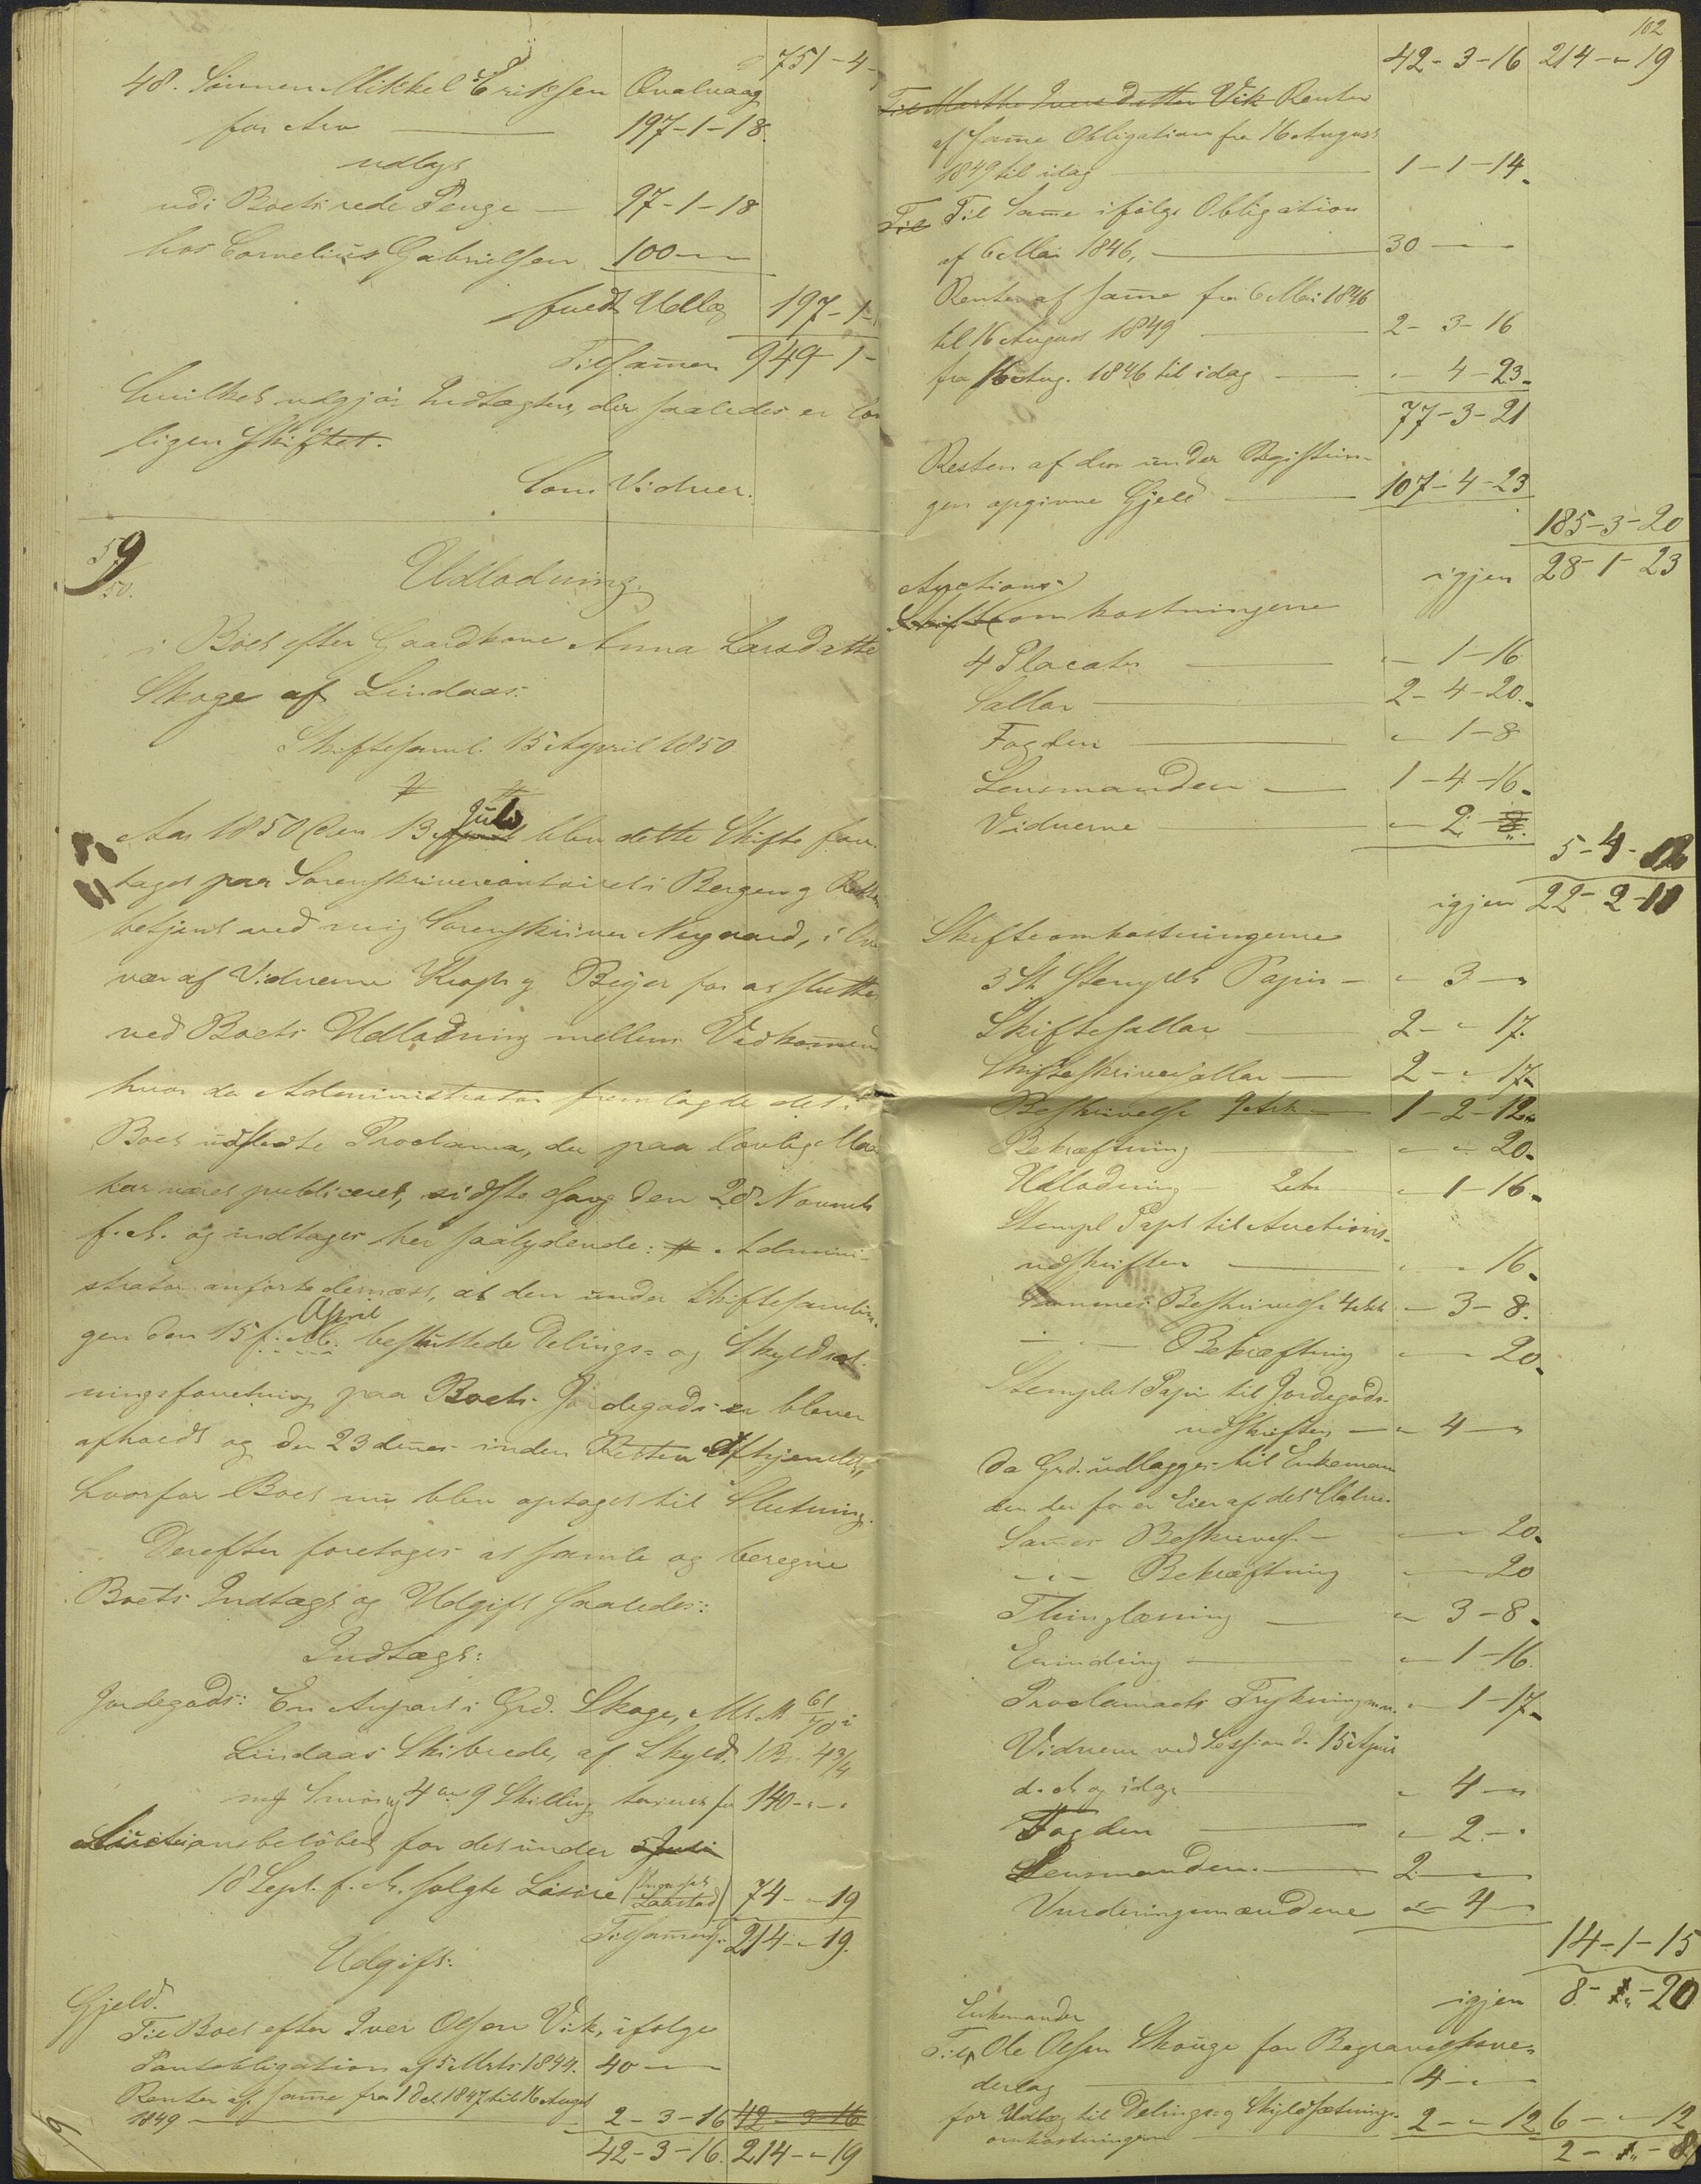 751-4-
48. Sønnen Mikkel Eriksen Qvalvaag
for Arv 197-1-18.
udlagt
udi Boets rede Penge 97-1-18
hos Cornelius Gabrielsen 100-"-"
fuldt Udlæg 197-1-
Tilsamen 949-1-
hvilket udgjør Indtægten, der saaledes er lov
ligen skiftet.
Som Vidner.
59
50.
Udlodning
i Boet efter Gaardkone Anna Larsdatte
Skoge af Lindaas.
Skiftesaml. 15 April 1850
Aar 1850 den 13 Juli blev dette Skifte fore
taget paa Sorenskrivercontoiret i Bergen og Retten
betjent ved mig Sorenskriver Nygaard, i Over
vær af Vidnerne Krogh og Beyer for at slutte
ved Boets Udlodning mellem Vedkommende
hvor da Administrator fremlagde det i
Boet udstedte Proclama, der paa lovlig Maade
har været publiceret, sidste Gang den 28 Novemb
f. A. og indtages her saalydende: # Admini-
strator anførte dernæst, at den under Skiftesamlin-
gen den 15 f. M. April besluttede Delings- og Skyldsæt-
ningsforretning paa Boets Jordegods er bleven
afholdt og den 23 denes inden Retten afhjemlet,
hvorfor Boet nu blev optaget til Slutning.
Derefter foretoges at samle og beregne
Boets Indtægt og Udgift saaledes:
Indtægt:
Jordegods: En Anpart i Grd. Skoge, Mt. N 61/70 i
Lindaas Skibrede, af Skyld 1 Bp. 4 3/4
mk Smør og 4 an 9 Skilling taxeret for 140-"-"
Auctionsbeløbet for det under 5 Juli
18 Sept. f. A. solgte Løsøre 74-"-19
Tilsamen 214-"-19.
Udgift:
Gjeld.
Til Boet efter Iver Olsen Vik, ifølge
Pantobligation af 5 Marts 1844. 40-"-"
Renter af same fra 1 Oct. 1847 til 16 August
1849 2-3-16 42-3-16
42-3-16. 214-"-19
102
42-3-16 214-"-19
Til Marthe Iversdatter Vik Renter
af same Obligation fra 16 August
1849 til idag 1-1-14
Til Til Same ifølge Obligation
af 6 Mai 1846, 30-"-"
Renter af same fra 6 Mai 1846
til 16 August 1849 2-3-16
fra 16 Aug. 1846 til idag "-4-23
77-3-21
Resten af den under Registerin-
gen opgivne Gjeld 107-4-23
185-3-20
igjen 28-1-23
Auctions
Skifteomkostningerne
4 Placater "-1-16
Sallar 2-4-20.
Fogden "-1-8
Lensmanden 1-4-16
Vidnerne "-2-
5-4-12
igjen 22-2-11
Skifteomkostningerne
3 St Stemplet Papir "-3-"
Skiftesallar 2-"-17.
Skifteskriversallar 2-"-17
Beskrivelse 9 Ark 1-2-12
Bekræftning "-"-20
Udlodning 2 Ark "-1-16
Stempl Papir til Auctions-
udskriften "-"-16
Sammes Beskrivelse 4 Ark "-3-8.
"-"- Bekræftning "-"-20
Stemplet Papir til Jordegods-
udskriften "-4-"
Da Grd. udlægges til Enkeman
den der før er Eier af det
Sames Beskrivelse "-"-20
"-"- Bekræftning "-"-20
Thinglæsning "-3-8
Erindring "-1-16
Proclamaets Trykning "-1-17
Vidnerne ved Session d. 15 April
d. A og idag "-4-"
Fogden "-2-"
Lensmanden 2-"-"
Vurderingsmændene "-4-"
14-1-15
igjen 8-"-20
Enkemanden
Til Ole Olsen Skouge for Begravelsesve-
derlag 4-"-"
for Udlæg til Delings- og Skyldsætnings-
omkostningerne 2-"-12 6-"-12
2-"-8